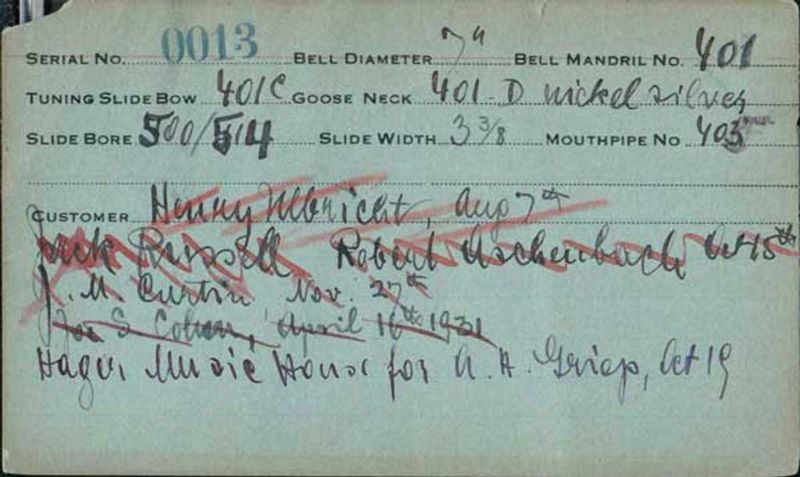 SERIAL NO. 0013 BELL DIAMETER 7" BELL MANDRIL NO. 401
TUNING SLIDE BOW 401C GOOSE NECK 401-D nickel silver
SLIDE BORE 500/514 SLIDE WIDTH 3 3/8 MOUTHPIPE NO 403
CUSTOMER Henry Ulbricht, Aug 7th
Jack Russell Robert Aschenbach Oct 15th
J. M. Curtin Nov. 27th
Joe S. Cohen, April 16th 1931
Hager Music House for A. H. Griep, Oct 19